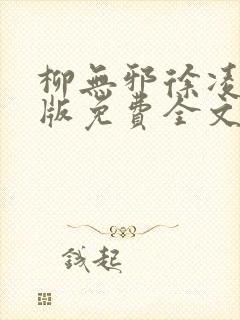 柳無邪徐凌
版免費全文
錢起